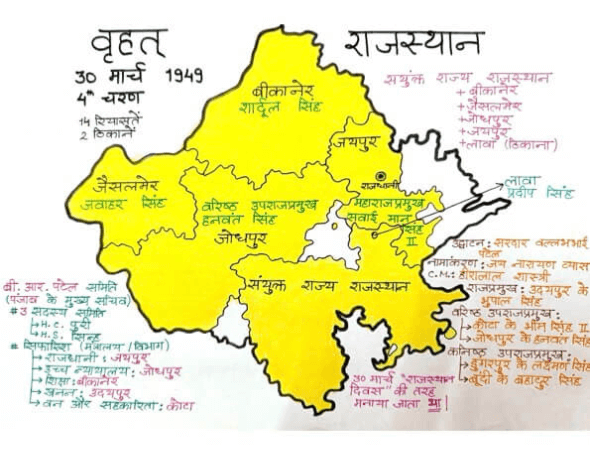 वृहत् राजस्थान
30 मार्च 1949
4th चरण
14 रियासतें
2 ठिकाने
सयुंक्त राज्य राजस्थान
+ बीकानेर
+ जैसलमेर
+ जोधपुर
+ जयपुर
+ लावा (ठिकाना)
बीकानेर
शार्दूल सिंह
जयपुर
राजधानी
जैसलमेर
जवाहर सिंह
वरिष्ठ उपराजप्रमुख
हनवंत सिंह
जोधपुर
महाराजप्रमुख
सवाई मान
सिंह
II
लावा
प्रदीप सिंह
संयुक्त राज्य राजस्थान
उद्घाटन : सरदार वल्लभभाई
पटेल
नामांकरण : जय नारायण व्यास
C.M. : हीरालाल शास्त्री
राजप्रमुख : उदयपुर के
भुपाल सिंह
वरिष्ठ उपराजप्रमुख :
→ कोटा के भीम सिंह II
→ जोधपुर के हनवंत सिंह
कनिष्ठ उपराजप्रमुख :
→ डुंगरपुर के लक्ष्मण सिंह
→ बूंदी के बहादुर सिंह
बी. आर. पटेल समिति
(पंजाब के मुख्य सचिव)
# 3 सदस्य समिति
→ H.C. पुरी
→ H.S. सिन्हा
# सिफारिश (मंत्रालय / विभाग)
→ राजधानी : जयपुर
→ उच्च न्यायालय : जोधपुर
→ शिक्षा : बीकानेर
→ खनन : उदयपुर
→ वन और सहकारिता : कोटा
30 मार्च "राजस्थान
दिवस" की तरह
मनाया जाता था